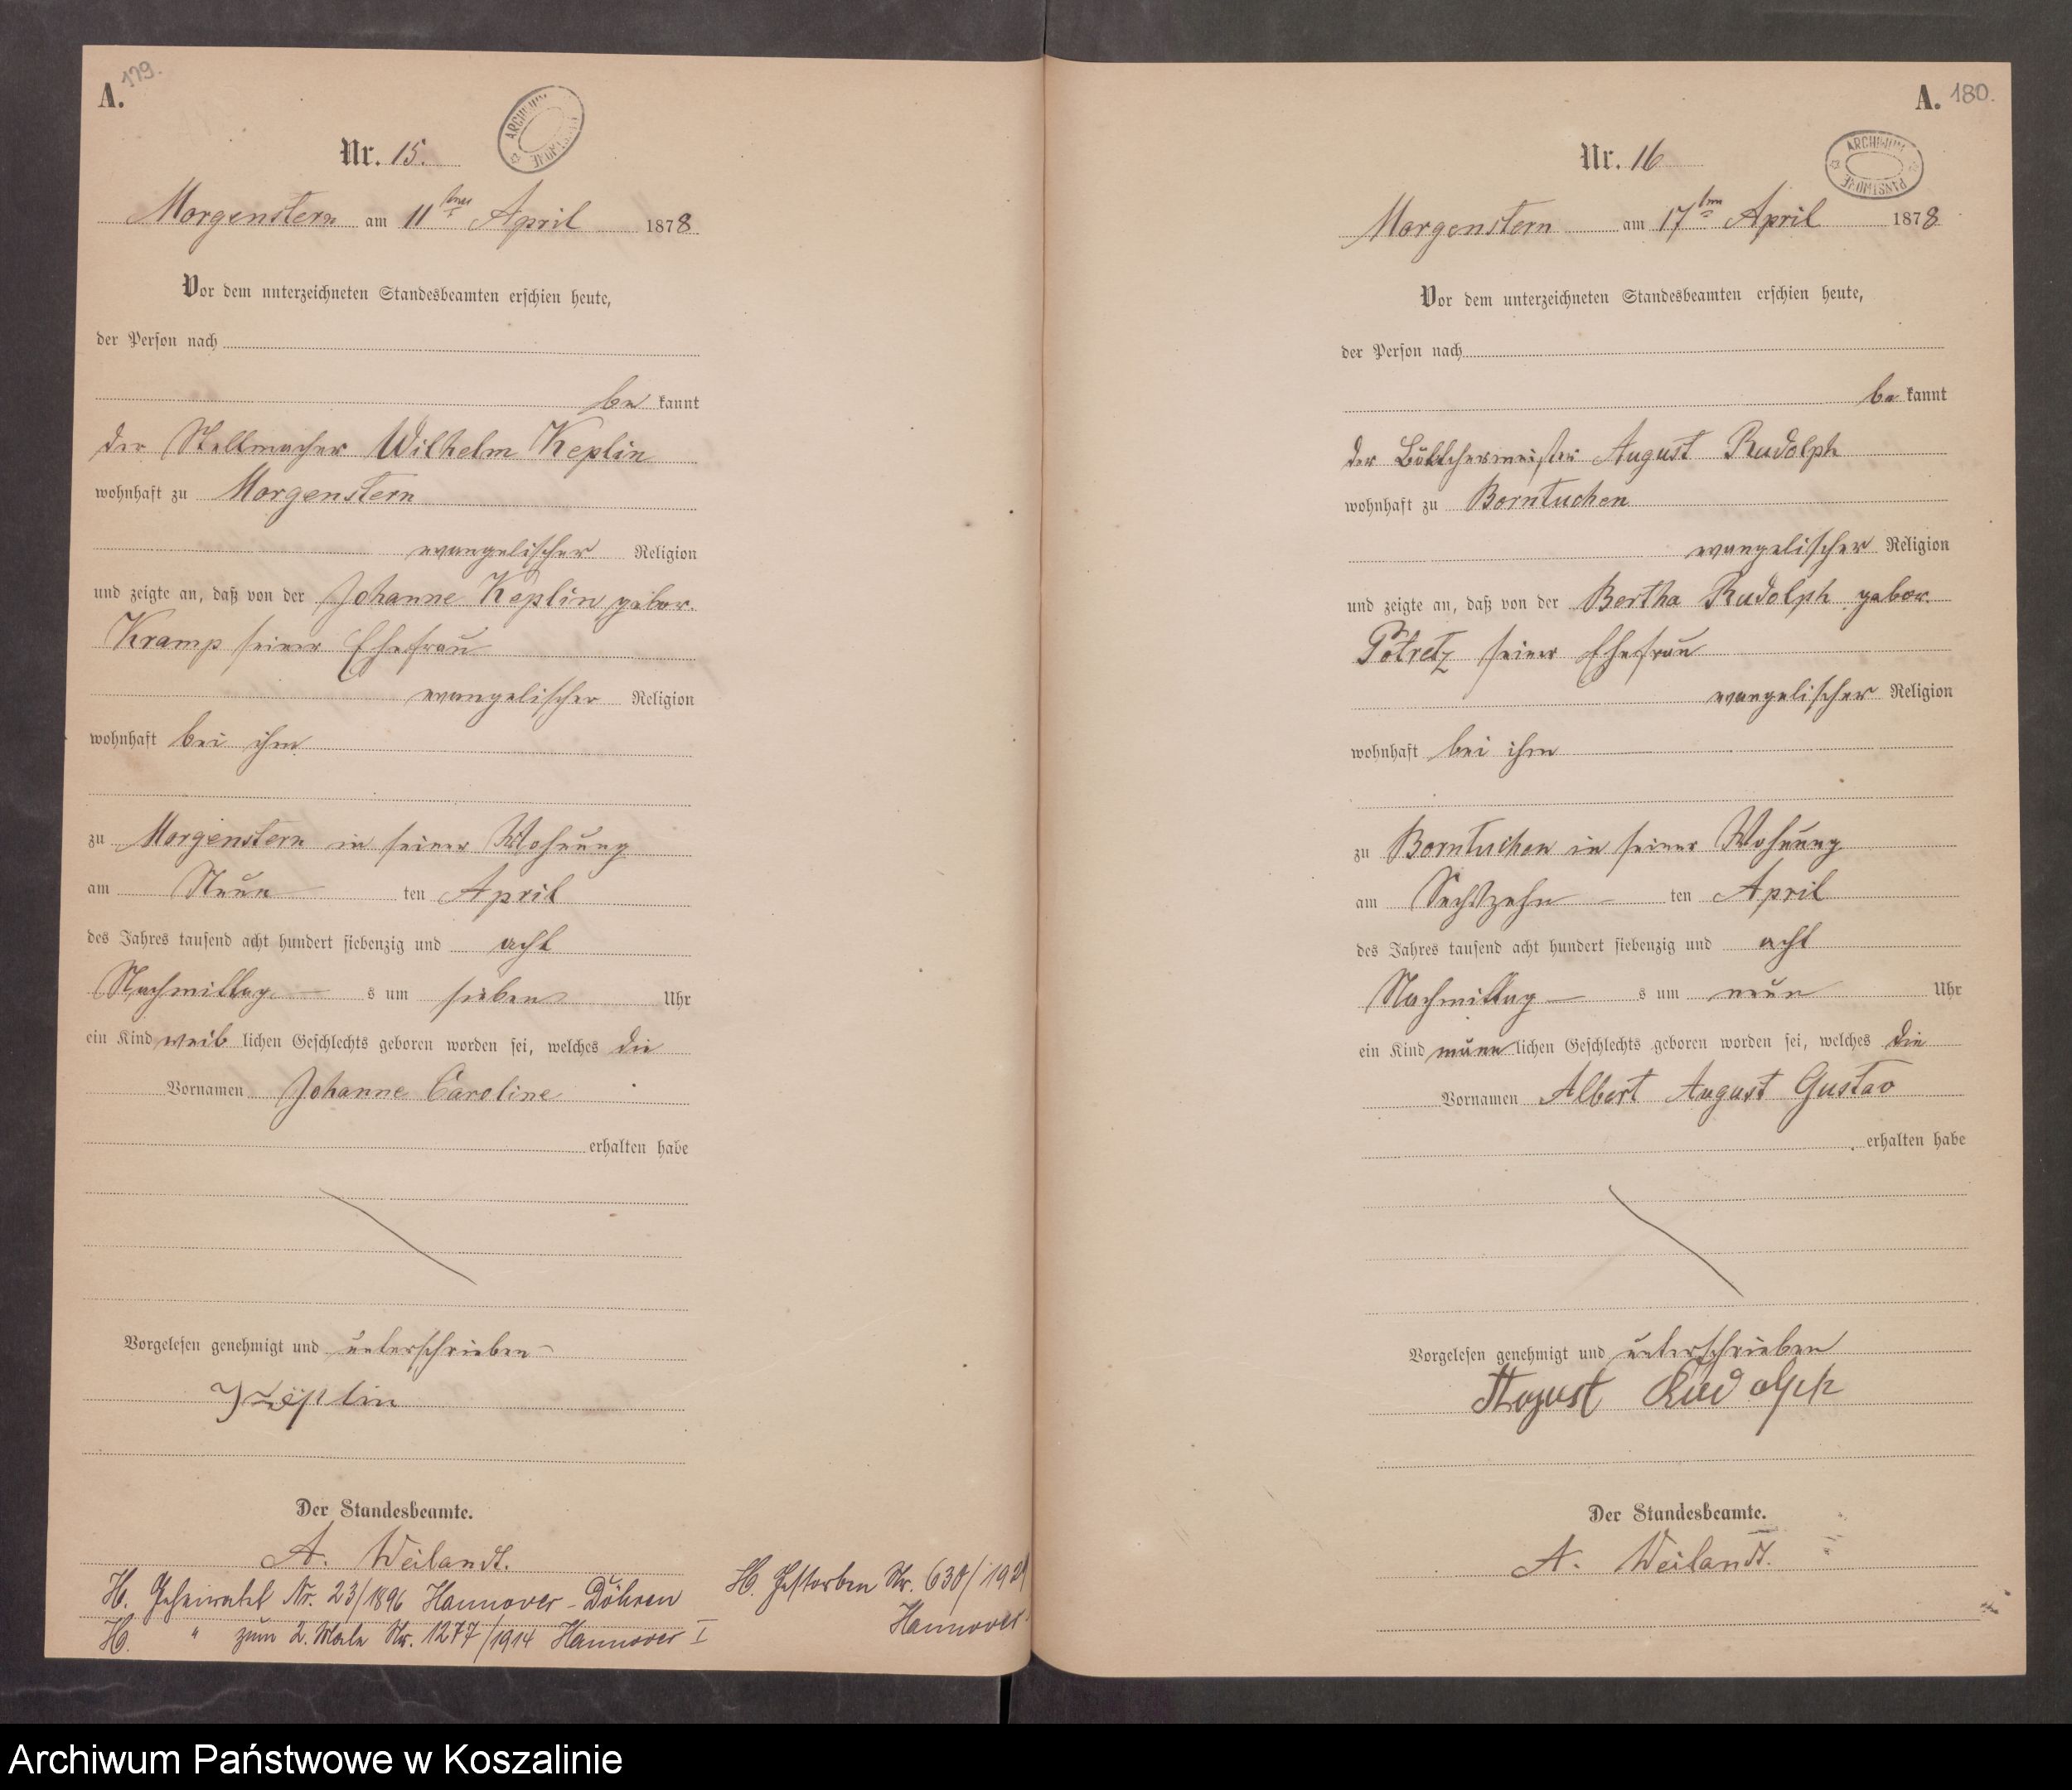 A. 179.
ARCHIWUM PAŃSTWOWE
Nr. 15.
Morgenstern am 11ten April 1878
Vor dem unterzeichneten Standesbeamten erschien heute,
der Person nach
be kannt
der Stellmacher Wilhelm Keplin
wohnhaft zu Morgenstern
evangelischer Religion
und zeigte an, daß von der Johanne Keplin, gebor.
Kramp seiner Ehefrau
evangelischer Religion
wohnhaft bei ihm
zu Morgenstern in seiner Wohnung
am Neun ten April
des Jahres tausend acht hundert siebenzig und acht
Nachmittag s um sieben Uhr
ein Kind weib lichen Geschlechts geboren worden sei, welches die
Vornamen Johanne Caroline
erhalten habe
Vorgelesen genehmigt und unterschrieben
Keplin
Der Standesbeamte.
A. Weilandt.
H. Geheiratet Nr. 23/1896 Hannover-Döhren
H. " zum 2. Male Nr. 1277/1914 Hannover I
H. Gestorben Nr. 630/192
Hannover
A. 180.
ARCHIWUM PAŃSTWOWE
Nr. 16
Morgenstern am 17ten April 1878
Vor dem unterzeichneten Standesbeamten erschien heute,
der Person nach
be kannt
der Böttchermeister August Rudolph
wohnhaft zu Borntuchen
evangelischer Religion
und zeigte an, daß von der Bertha Rudolph gebor.
Pötretz seiner Ehefrau
evangelischer Religion
wohnhaft bei ihm
zu Borntuchen in seiner Wohnung
am Sechszehn ten April
des Jahres tausend acht hundert siebenzig und acht
Nachmittag s um neun Uhr
ein Kind männ lichen Geschlechts geboren worden sei, welches die
Vornamen Albert August Gustav
erhalten habe
Vorgelesen genehmigt und unterschrieben
August Rudolph
Der Standesbeamte.
A. Weilandt.
Archiwum Państwowe w Koszalinie